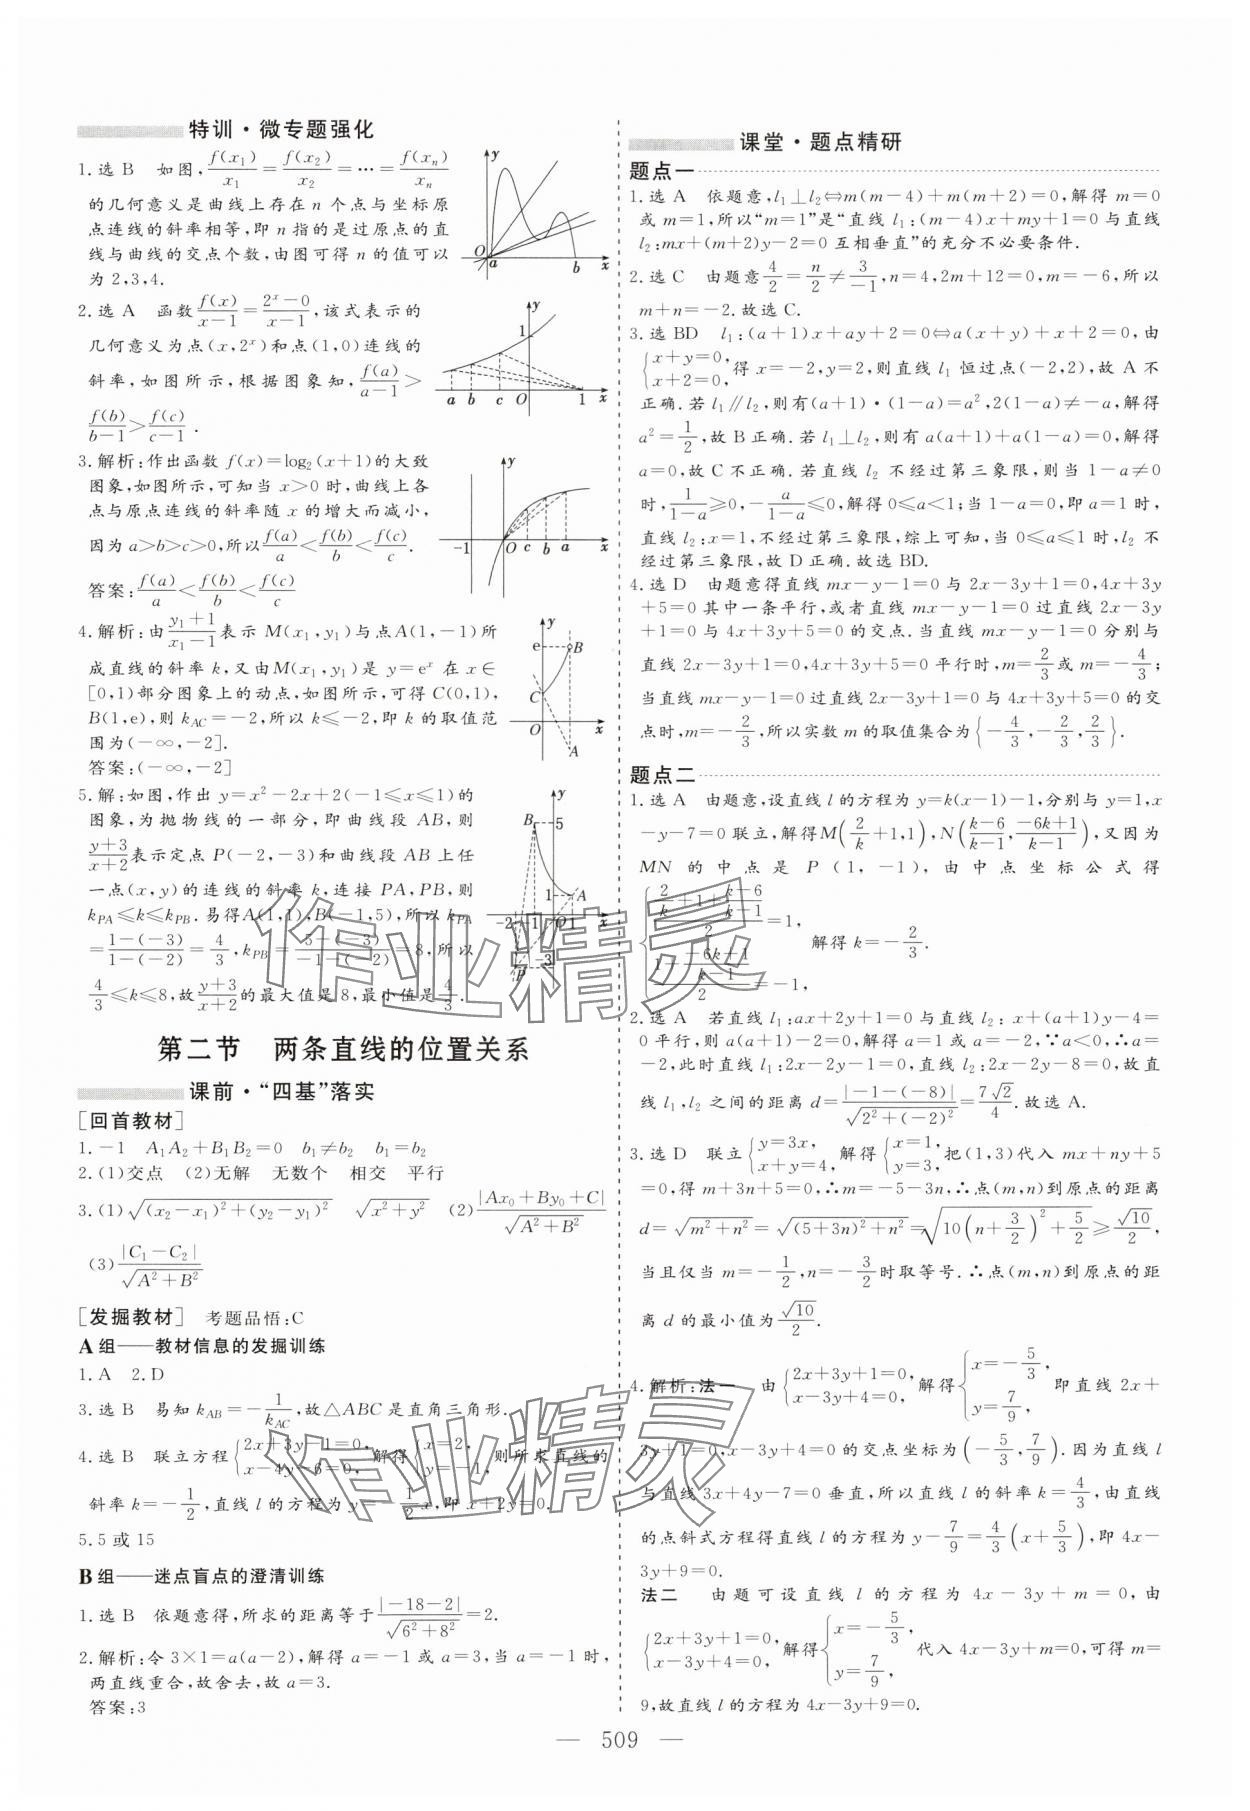 特训·微专题强化
1.选 B 如图,f(x₁)/x₁=f(x₂)/x₂=…=f(xₙ)/xₙ
的几何意义是曲线上存在 n 个点与坐标原
点连线的斜率相等,即 n 指的是过原点的直
线与曲线的交点个数,由图可得 n 的值可以
为 2,3,4.
2.选 A 函数 f(x)/(x-1)=(2ˣ-0)/(x-1),该式表示的
几何意义为点(x,2ˣ)和点(1,0)连线的
斜率,如图所示,根据图象知,f(a)/(a-1)>
f(b)/(b-1)>f(c)/(c-1).
3.解析:作出函数 f(x)=log₂(x+1)的大致
图象,如图所示,可知当 x>0 时,曲线上各
点与原点连线的斜率随 x 的增大而减小,
因为 a>b>c>0,所以f(a)/a<f(b)/b<f(c)/c.
答案:f(a)/a<f(b)/b<f(c)/c
4.解析:由(y₁+1)/(x₁-1)表示 M(x₁,y₁)与点A(1,-1)所
成直线的斜率 k,又由M(x₁,y₁)是 y=eˣ 在 x∈
[0,1)部分图象上的动点,如图所示,可得 C(0,1),
B(1,e),则 k_AC=-2,所以 k≤-2,即 k 的取值范
围为(-∞,-2].
答案:(-∞,-2]
5.解:如图,作出 y=x²-2x+2(-1≤x≤1)的
图象,为抛物线的一部分,即曲线段 AB,则
(y+3)/(x+2)表示定点 P(-2,-3)和曲线段 AB 上任
一点(x,y)的连线的斜率 k,连接 PA,PB,则
k_PA≤k≤k_PB.易得A(1,1),B(-1,5),所以 k_PA
=(1-(-3))/(1-(-2))=4/3,k_PB=(5-(-3))/(-1-(-2))=8,所以
4/3≤k≤8,故(y+3)/(x+2)的最大值是 8,最小值是4/3.
第二节 两条直线的位置关系
课前·“四基”落实
[回首教材]
1.-1 A₁A₂+B₁B₂=0 b₁≠b₂ b₁=b₂
2.(1)交点 (2)无解 无数个 相交 平行
3.(1)√((x₂-x₁)²+(y₂-y₁)²) √(x²+y²) (2)|Ax₀+By₀+C|/√(A²+B²)
(3)|C₁-C₂|/√(A²+B²)
[发掘教材] 考题品悟:C
A 组——教材信息的发掘训练
1.A 2.D
3.选 B 易知 k_AB=-1/k_AC,故△ABC 是直角三角形.
4.选 B 联立方程{2x+3y-1=0, x-4y-6=0,解得{x=2, y=-1,则所求直线的
斜率 k=-1/2,直线 l 的方程为 y=-1/2x,即 x+2y=0.
5.5 或 15
B 组——迷点盲点的澄清训练
1.选 B 依题意得,所求的距离等于|-18-2|/√(6²+8²)=2.
2.解析:令 3×1=a(a-2),解得 a=-1 或 a=3,当 a=-1 时,
两直线重合,故舍去,故 a=3.
答案:3
课堂·题点精研
题点一
1.选 A 依题意,l₁⊥l₂⇔m(m-4)+m(m+2)=0,解得 m=0
或 m=1,所以“m=1”是“直线 l₁:(m-4)x+my+1=0 与直线
l₂:mx+(m+2)y-2=0 互相垂直”的充分不必要条件.
2.选 C 由题意4/2=n/2≠3/-1,n=4,2m+12=0,m=-6,所以
m+n=-2.故选 C.
3.选 BD l₁:(a+1)x+ay+2=0⇔a(x+y)+x+2=0,由
{x+y=0, x+2=0,得 x=-2,y=2,则直线 l₁ 恒过点(-2,2),故 A 不
正确.若 l₁∥l₂,则有(a+1)·(1-a)=a²,2(1-a)≠-a,解得
a²=1/2,故 B 正确.若 l₁⊥l₂,则有 a(a+1)+a(1-a)=0,解得
a=0,故 C 不正确.若直线 l₂ 不经过第三象限,则当 1-a≠0
时,1/(1-a)≥0,-a/(1-a)≤0,解得 0≤a<1;当 1-a=0,即 a=1 时,
直线 l₂:x=1,不经过第三象限,综上可知,当 0≤a≤1 时,l₂ 不
经过第三象限,故 D 正确.故选 BD.
4.选 D 由题意得直线 mx-y-1=0 与 2x-3y+1=0,4x+3y
+5=0 其中一条平行,或者直线 mx-y-1=0 过直线 2x-3y
+1=0 与 4x+3y+5=0 的交点.当直线 mx-y-1=0 分别与
直线 2x-3y+1=0,4x+3y+5=0 平行时,m=2/3或 m=-4/3;
当直线 mx-y-1=0 过直线 2x-3y+1=0 与 4x+3y+5=0 的交
点时,m=-2/3,所以实数 m 的取值集合为{-4/3,-2/3,2/3}.
题点二
1.选 A 由题意,设直线 l 的方程为 y=k(x-1)-1,分别与 y=1,x
-y-7=0 联立,解得M(2/k+1,1),N((k-6)/(k-1),(-6k+1)/(k-1)),又因为
MN 的中点是 P(1,-1),由中点坐标公式得
{(2/k+1+(k-6)/(k-1))/2=1, (1+(-6k+1)/(k-1))/2=-1, 解得 k=-2/3.
2.选 A 若直线 l₁:ax+2y+1=0 与直线 l₂: x+(a+1)y-4=
0 平行,则 a(a+1)-2=0,解得 a=1 或 a=-2,∵a<0,∴a=
-2,此时直线 l₁:2x-2y-1=0,直线 l₂:2x-2y-8=0,故直
线 l₁,l₂ 之间的距离 d=|-1-(-8)|/√(2²+(-2)²)=7√2/4.故选 A.
3.选 D 联立{y=3x, x+y=4,解得{x=1, y=3,把(1,3)代入 mx+ny+5
=0,得 m+3n+5=0,∴m=-5-3n,∴点(m,n)到原点的距离
d=√(m²+n²)=√((5+3n)²+n²)=√(10(n+3/2)²+5/2)≥√10/2,
当且仅当 m=-1/2,n=-3/2时取等号.∴点(m,n)到原点的距
离 d 的最小值为√10/2.
4.解析:法一 由{2x+3y+1=0, x-3y+4=0,解得{x=-5/3, y=7/9, 即直线 2x+
3y+1=0,x-3y+4=0 的交点坐标为(-5/3,7/9).因为直线 l
与直线 3x+4y-7=0 垂直,所以直线 l 的斜率 k=4/3,由直线
的点斜式方程得直线 l 的方程为 y-7/9=4/3(x+5/3),即 4x-
3y+9=0.
法二 由题可设直线 l 的方程为 4x-3y+m=0,由
{2x+3y+1=0, x-3y+4=0,解得{x=-5/3, y=7/9, 代入 4x-3y+m=0,可得 m=
9,故直线 l 的方程为 4x-3y+9=0.
— 509 —
作业精灵
作业精灵